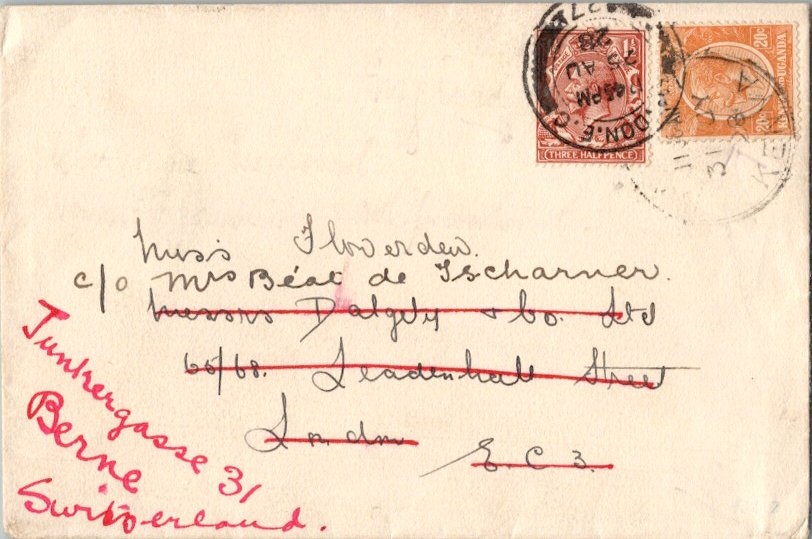 THREE HALFPENCE
DON.E.C.
45 PM
25 AU
28
20c
20c
UGANDA
11
31
Miss Flowerdew.
c/o Mrs Béat de Tscharner.
Messrs Dalgety & Co. Ltd
65/68. Leadenhall Street
London
E. C. 3.
Junkergasse 31
Berne
Switzerland.